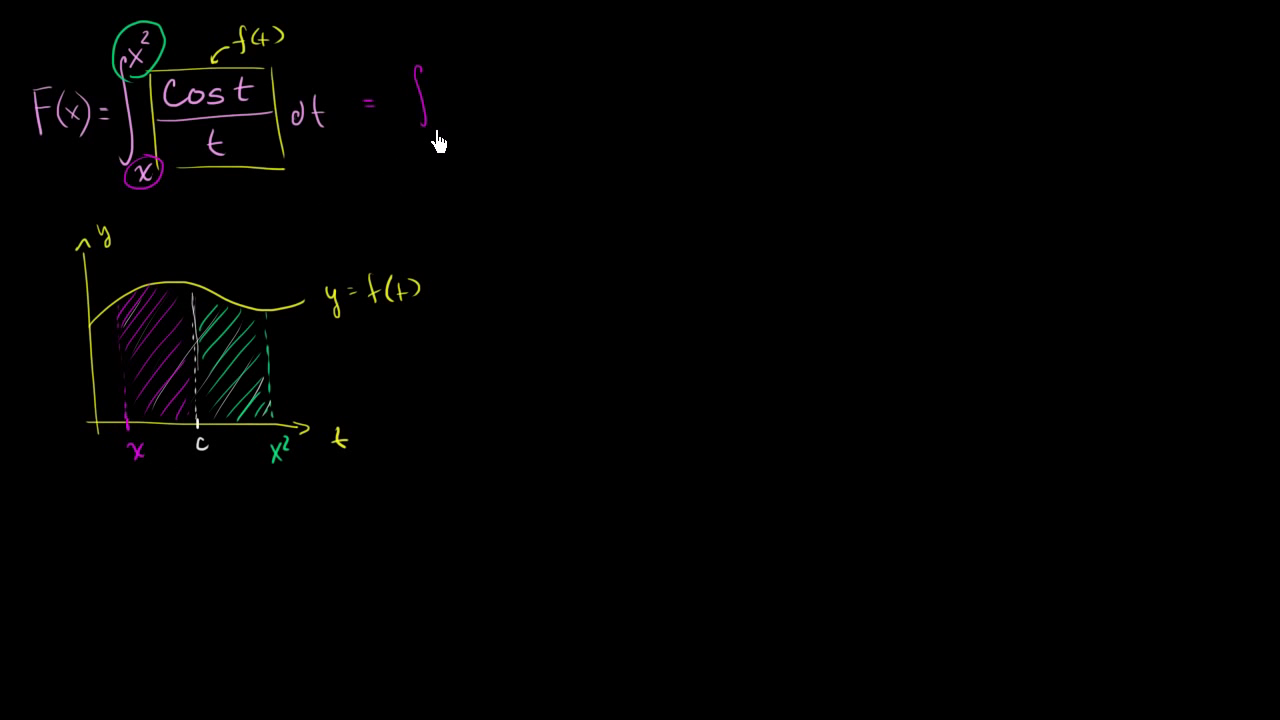 F(x) = ∫ₓ^(x²) cos t / t dt = ∫
f(t)
y
y = f(t)
x c x² t